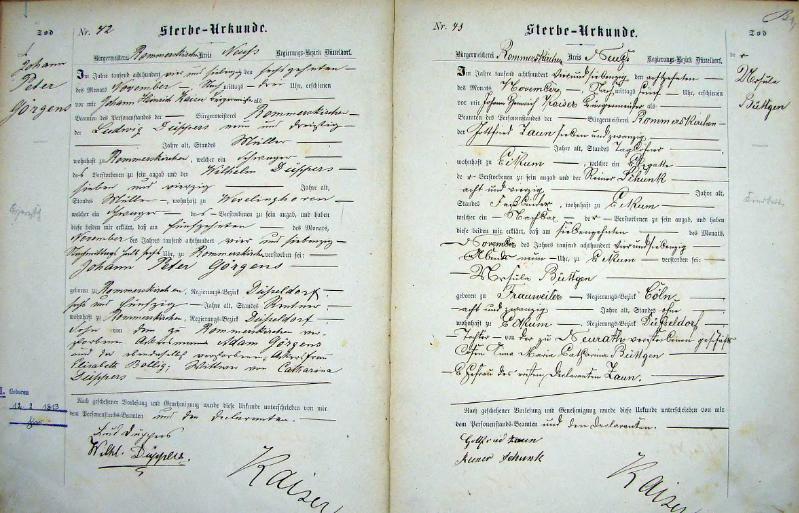 Tod
Johann
Peter
Görgens
Nr. 42
Sterbe-Urkunde.
Bürgermeisterei Rommerskirchen Kreis Neuss Regierungs-Bezirk Düsseldorf.
Im Jahre tausend achthundert vier und siebenzig den sechszehnten
des Monats November Nachmittags drei Uhr, erschienen
vor Johann Heinrich Kaiser Bürgermeister als
Beamten des Personenstandes der Bürgermeisterei Rommerskirchen
der Ludwig Düppers neun und dreißig
Jahre alt, Standes Müller
wohnhaft Rommerskirchen, welcher ein Schwager
des Verstorbenen zu sein angab und der Wilhelm Düppers
sieben und vierzig Jahre alt,
Standes Müller, wohnhaft zu Wevelinghoven
welcher ein Schwager des Verstorbenen zu sein angab, und haben
diese beiden mir erklärt, daß am fünfzehnten des Monats
November des Jahres tausend achthundert vier und siebenzig
Nachmittags halb sechs Uhr, zu Rommerskirchen verstorben sei:
Johann Peter Görgens
geboren zu Rommerskirchen, Regierungs-Bezirk Düsseldorf
sechs und fünfzig Jahre alt, Standes Rentner
wohnhaft zu Rommerskirchen, Regierungs-Bezirk Düsseldorf
Sohn von den zu Rommerskirchen ver-
storbenen Adam Görgens
und der ebendaselbst verstorbenen
Elisabeth Wittwer von Catharina
Düppers
Nach geschehener Vorlesung und Genehmigung wurde diese Urkunde unterschrieben von mir
dem Personenstands-Beamten und den Declaranten.
Düppers
Wilh. Düppers.
Kaiser
Geboren
Nr. 43
Sterbe-Urkunde.
Bürgermeisterei Rommerskirchen Kreis Neuss Regierungs-Bezirk Düsseldorf.
Im Jahre tausend achthundert vierundsiebenzig den achtzehnten
des Monats November, Nachmittags fünf Uhr, erschienen
vor Johann Heinrich Kaiser Bürgermeister als
Beamten des Personenstandes der Bürgermeisterei Rommerskirchen
der Gottfried Zaun sieben und zwanzig
Jahre alt, Standes Tagelöhner
wohnhaft zu Eikum, welcher ein Ehegatte
der Verstorbenen zu sein angab und der Reiner Schunk
acht und vierzig Jahre alt,
Standes Faßbinder, wohnhaft zu Eckum
welcher ein Nachbar der Verstorbenen zu sein angab, und haben
diese beiden mir erklärt, daß am siebenzehnten des Monats
November des Jahres tausend achthundert vierundsiebenzig
Abends neun Uhr, zu Eckum verstorben sei:
Ursula Büttgen
geboren zu Frauweiler Regierungs-Bezirk Cöln
acht und zwanzig Jahre alt, Standes ohne
wohnhaft zu Eckum Regierungs-Bezirk Düsseldorf
Tochter von der zu Neurath verstorbenen
Anna Maria Catharina Büttgen
Ehefrau des ersten Declaranten Zaun.
Nach geschehener Vorlesung und Genehmigung wurde diese Urkunde unterschrieben von mir
dem Personenstands-Beamten und den Declaranten.
Gottfried Zaun
Reiner Schunk
Kaiser
Tod
der
Ursula
Büttgen